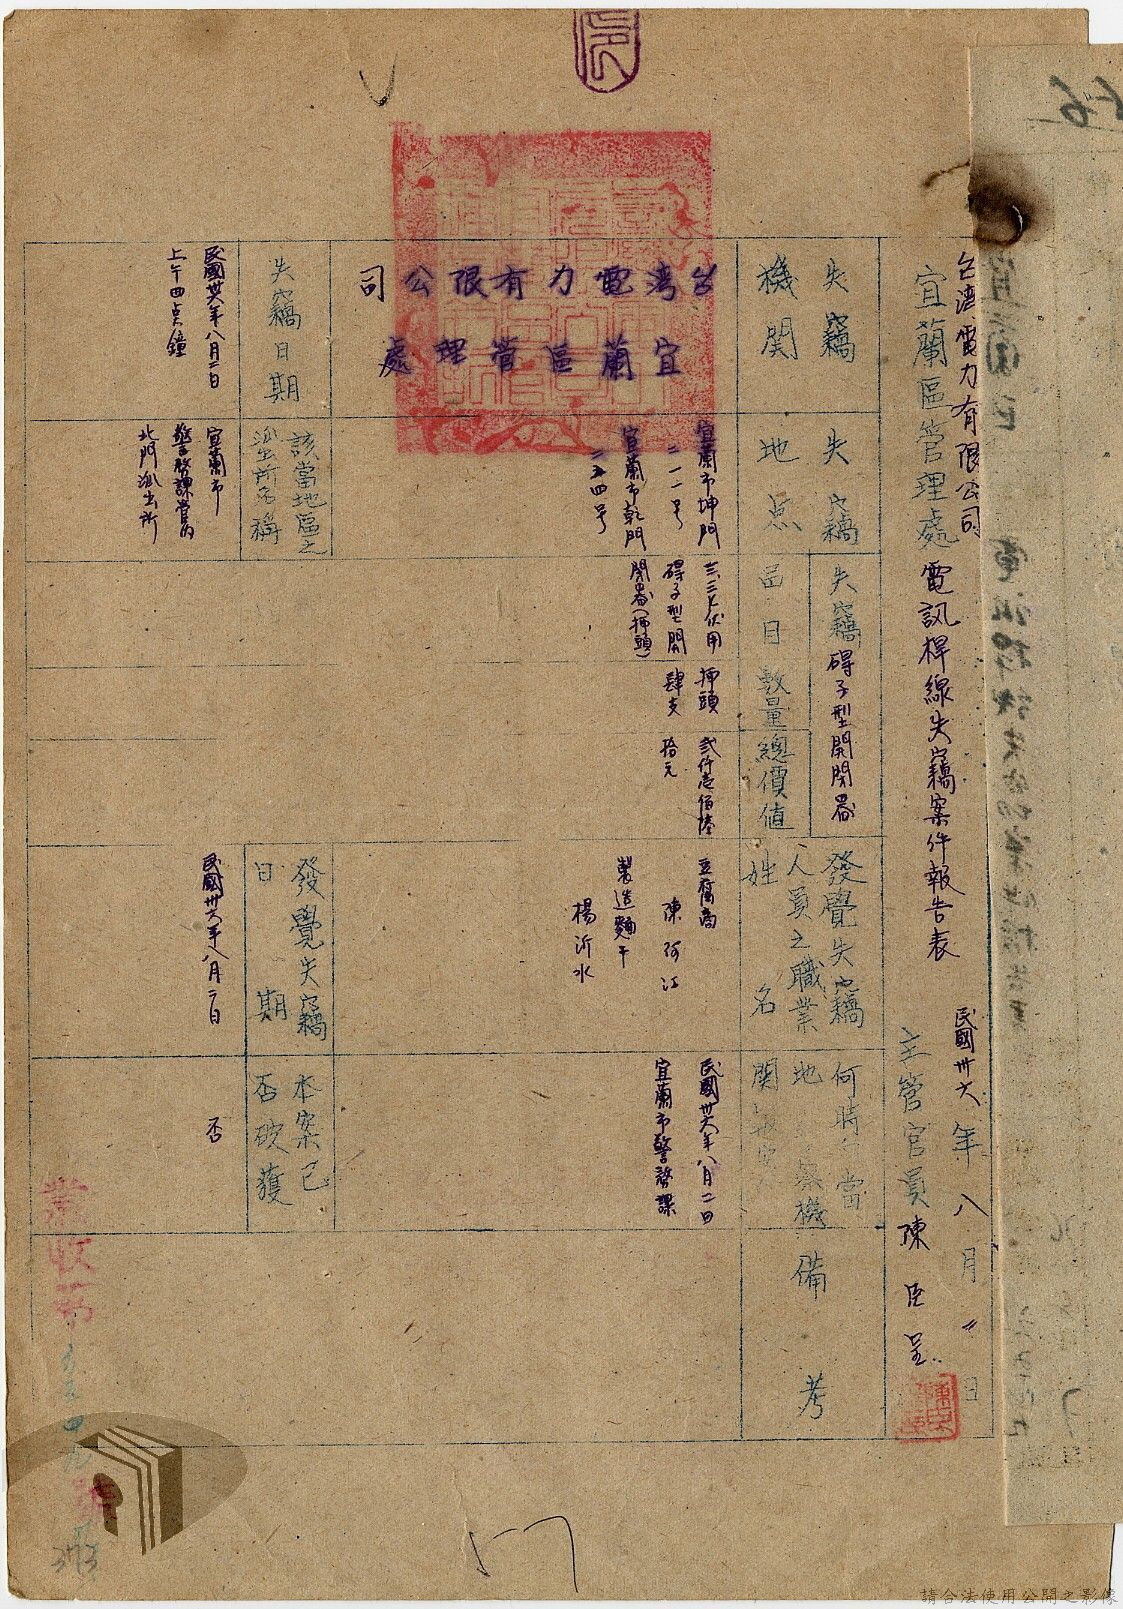 台湾電力有限公司
宜蘭區管理處電訊桿線失竊案件報告表
民國卅六年八月 日
主管官員陳臣呈
失竊
機関
台湾電力有限公司
宜蘭區管理處
失竊日期
民國卅六年八月二日
上午四点鐘
失竊
地点
宜蘭市坤門
二一一号
宜蘭市乾門
號
該當地區之
派出所名稱
宜蘭市
警務課管内
北門派出所
失竊碍子型開閉器
品目
三.三七伏用
碍子型開
閉器(挿頭)
數量
挿頭
肆支
總價值
弍仟壱佰陸
拾元
發覺失竊
人員之職業
姓名
豆腐商
陳阿江
製造麵干
楊沂水
發覺失竊
日期
民國卅六年八月二日
何時 當
地 機
関
民國卅六年八月二日
宜蘭市警務課
本案已
否破獲
否
備考
業收第 五四九 號
373
請合法使用公開之影像